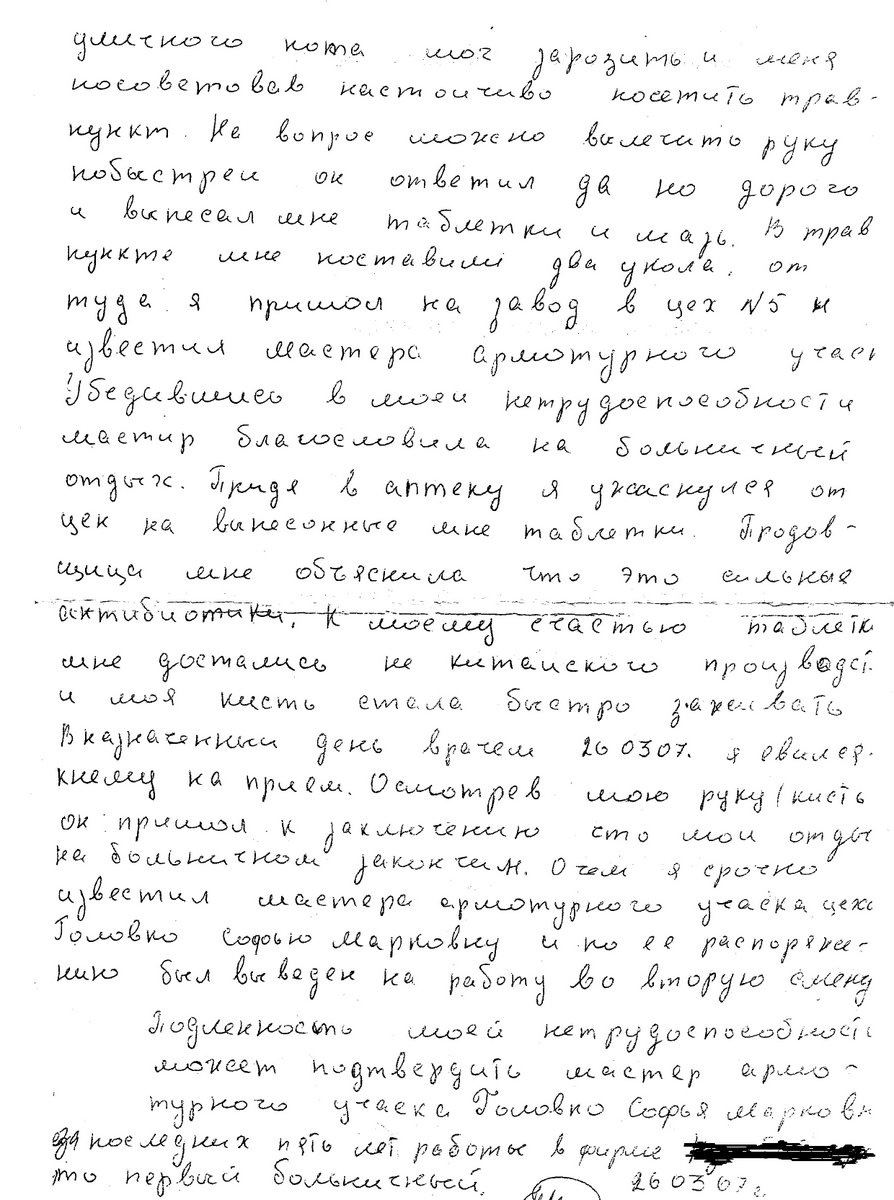 уличного кота мог зарозить и меня
посоветовав настоичиво посетить трав-
пункт. На вопрос можно вылечить руку
побыстреи он ответил да но дорого
и выпесал мне таблетки и мазь. В трав
пункте мне поставили два укола. от
туда я пришол на завод в цех №5 и
известил мастера армотурного учаск
Убедившись в моеи нетрудоспособности
мастир благословила на больничный
отдых. Придя в аптеку я ужаснулся от
цен на выпесонные мне таблетки. Продов-
щица мне объяснила что это сильные
антибиотики. К моему счастью таблетк
мне достались не китаиского производст
и моя кисть стала быстро заживать
В назначенныи день врачем 260307. я евился
кнему на прием. Осмотрев мою руку/кисть
он пришол к заключению сто мои отды
на больничном закончин. Очем я срочно
известил мастера армотурного учаска цеха
Головко Софью Марковну и по ее распоряже-
нию был выведен на работу во вторую смену
Подленность моей нетрудоспособност
может подтвердить мастер армо-
турного учаска Головко Софья Марковн
за последних пять лет работы в фирме
то первый больничный. 260307г.